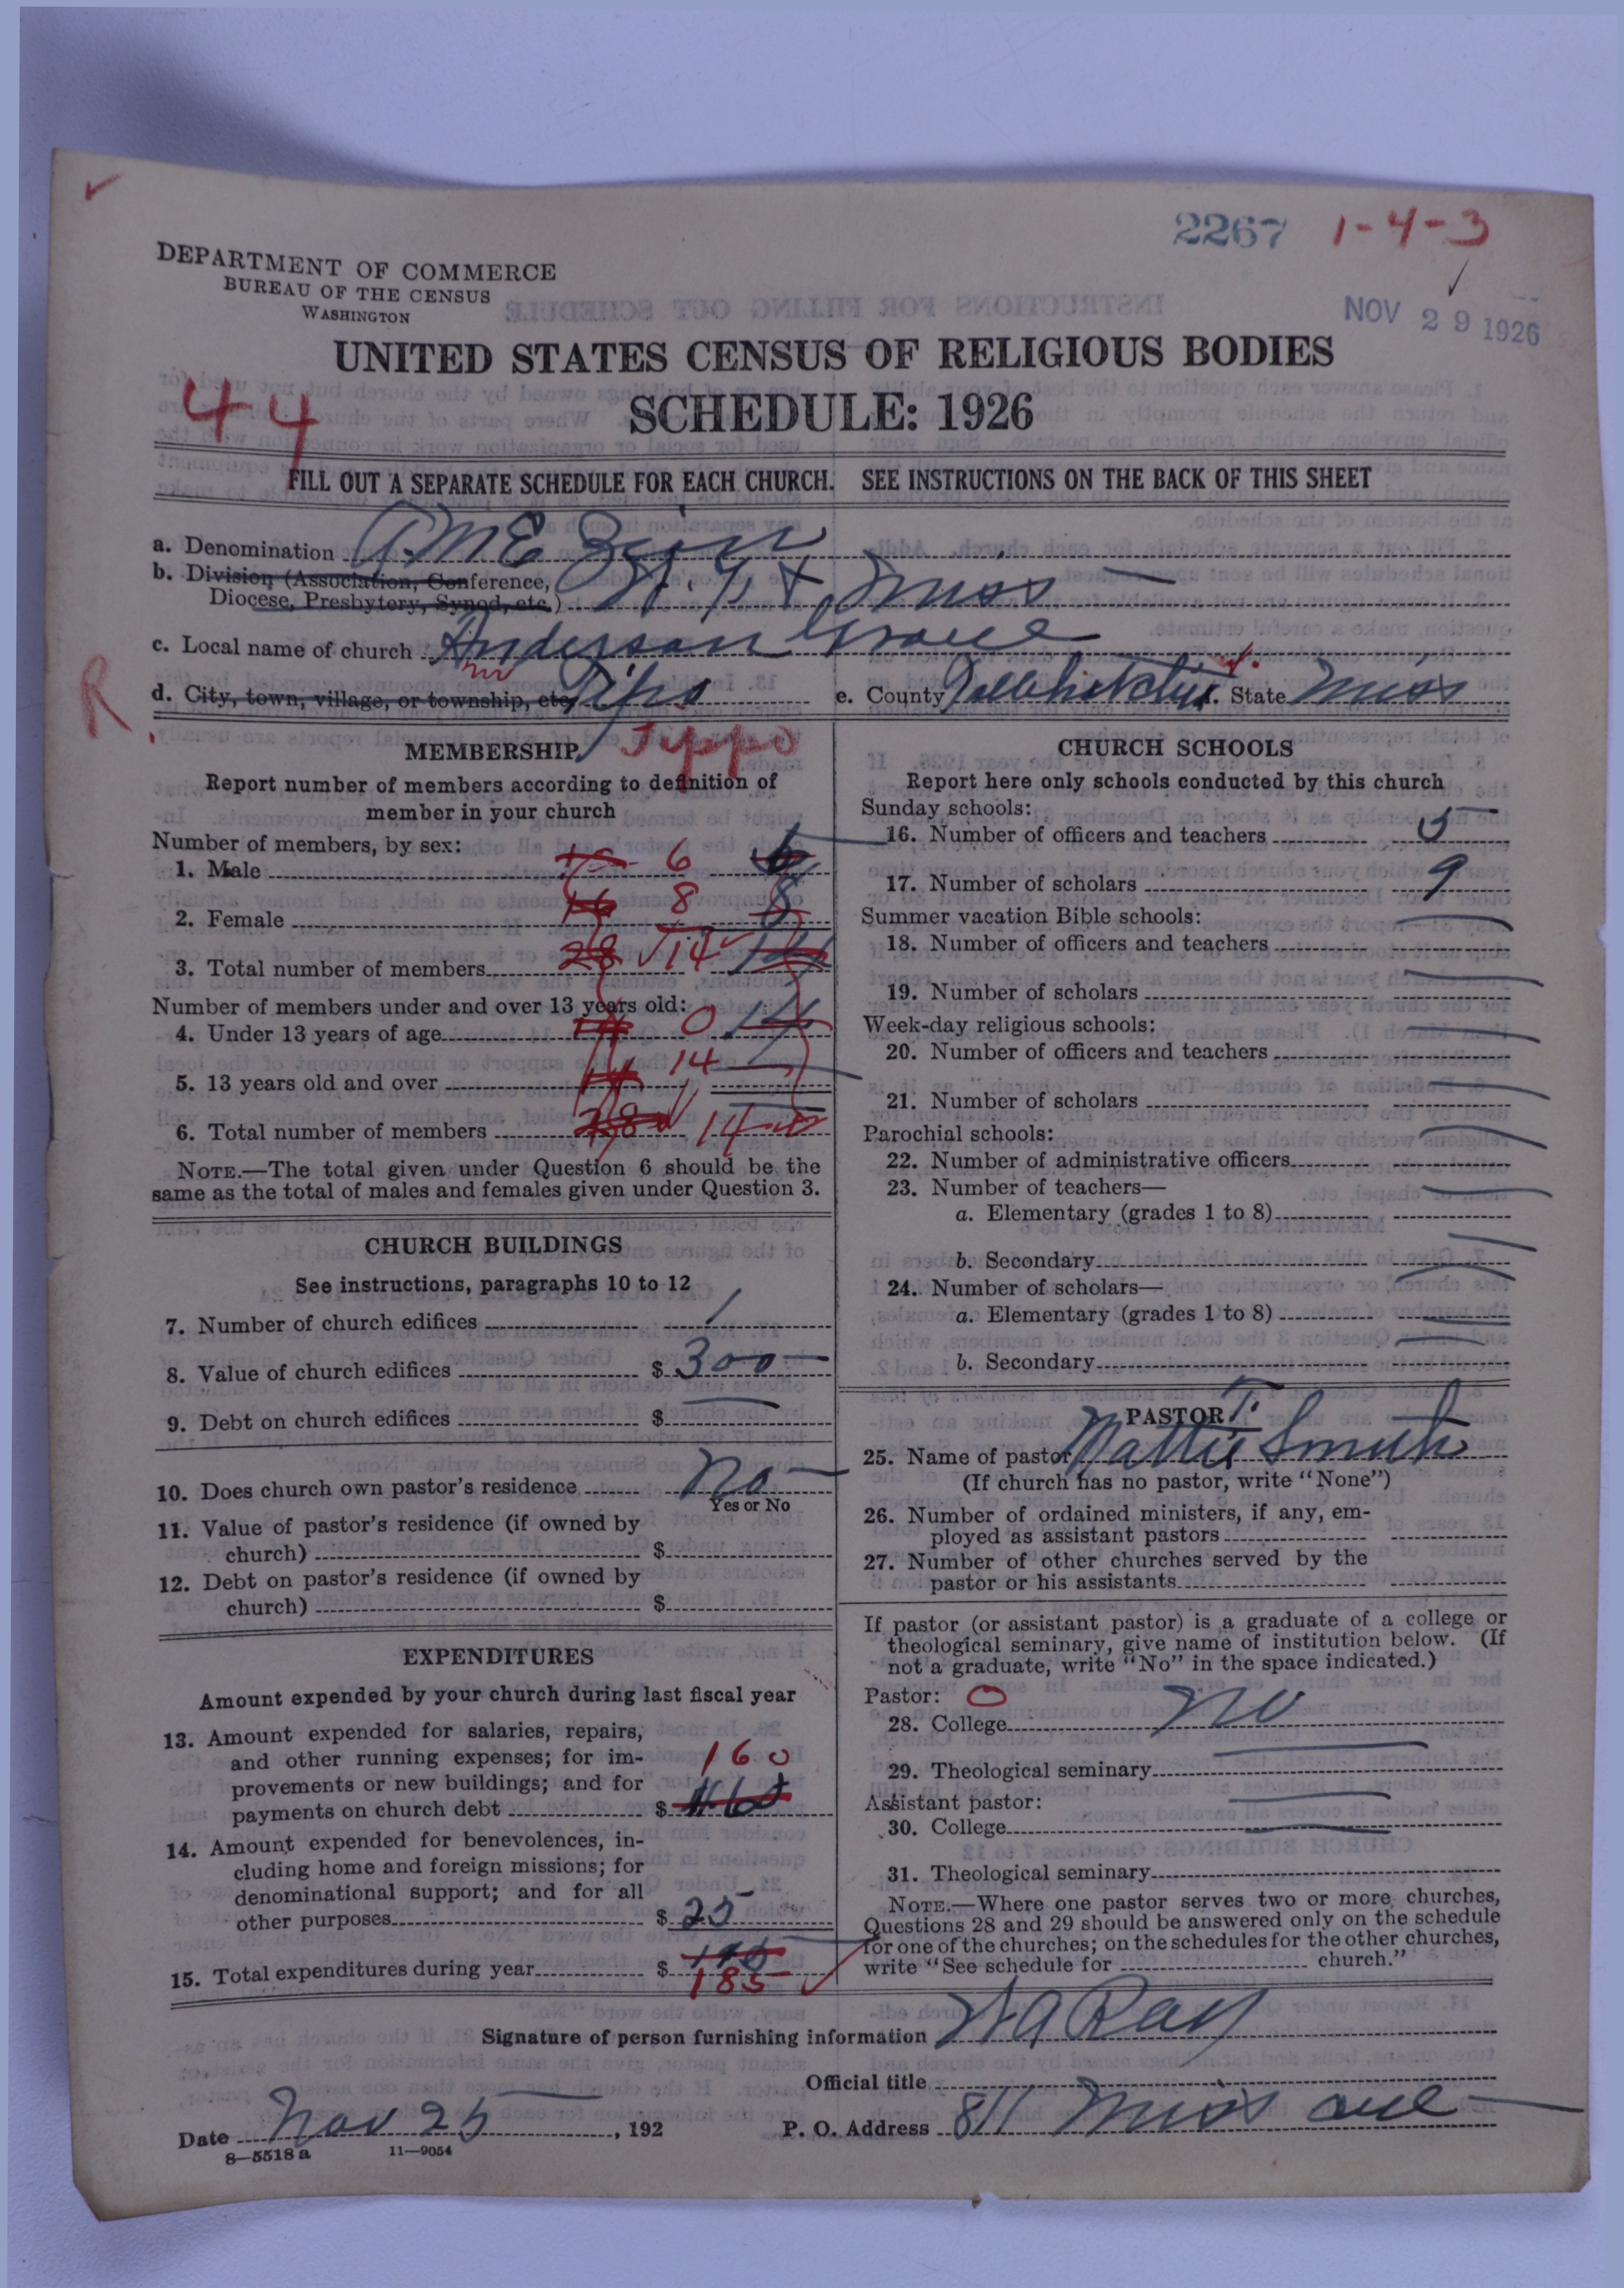 2267 1-4-3
DEPARTMENT OF COMMERCE
BUREAU OF THE CENSUS
WASHINGTON
NOV 29 1926
UNITED STATES CENSUS OF RELIGIOUS BODIES
44
SCHEDULE: 1926
FILL OUT A SEPARATE SCHEDULE FOR EACH CHURCH. SEE INSTRUCTIONS ON THE BACK OF THIS SHEET
a. Denomination A M E Zion
b. Division (Association, Conference,
Diocese, Presbytery, Synod, etc.) Miss
c. Local name of church Anderson Grove
R
d. City, town, village, or township, etc. Tipo e. County f. State Miss
Tippo
MEMBERSHIP
Report number of members according to definition of
member in your church
Number of members, by sex:
1. Male 6 6
2. Female 16 8 8
3. Total number of members 28 14 14
Number of members under and over 13 years old:
4. Under 13 years of age 14 0 14
5. 13 years old and over 14 14
6. Total number of members 28 14
NOTE.—The total given under Question 6 should be the
same as the total of males and females given under Question 3.
CHURCH BUILDINGS
See instructions, paragraphs 10 to 12
7. Number of church edifices 1
8. Value of church edifices $ 300
9. Debt on church edifices $
10. Does church own pastor's residence No
Yes or No
11. Value of pastor's residence (if owned by
church) $
12. Debt on pastor's residence (if owned by
church) $
EXPENDITURES
Amount expended by your church during last fiscal year
13. Amount expended for salaries, repairs,
and other running expenses; for im-
provements or new buildings; and for
payments on church debt $ 160
14. Amount expended for benevolences, in-
cluding home and foreign missions; for
denominational support; and for all
other purposes $ 25
15. Total expenditures during year $ 185
CHURCH SCHOOLS
Report here only schools conducted by this church
Sunday schools:
16. Number of officers and teachers 5
17. Number of scholars 9
Summer vacation Bible schools:
18. Number of officers and teachers
19. Number of scholars
Week-day religious schools:
20. Number of officers and teachers
21. Number of scholars
Parochial schools:
22. Number of administrative officers
23. Number of teachers—
a. Elementary (grades 1 to 8)
b. Secondary
24. Number of scholars—
a. Elementary (grades 1 to 8)
b. Secondary
PASTOR
25. Name of pastor Mattie T. Smith
(If church has no pastor, write "None")
26. Number of ordained ministers, if any, em-
ployed as assistant pastors
27. Number of other churches served by the
pastor or his assistants
If pastor (or assistant pastor) is a graduate of a college or
theological seminary, give name of institution below. (If
not a graduate, write "No" in the space indicated.)
Pastor: 0
28. College No
29. Theological seminary
Assistant pastor:
30. College
31. Theological seminary
NOTE.—Where one pastor serves two or more churches,
Questions 28 and 29 should be answered only on the schedule
for one of the churches; on the schedules for the other churches,
write "See schedule for church."
Signature of person furnishing information Ray
Official title
Date Nov 25, 192 P. O. Address 811 Miss ave
8—5518 a 11—9054